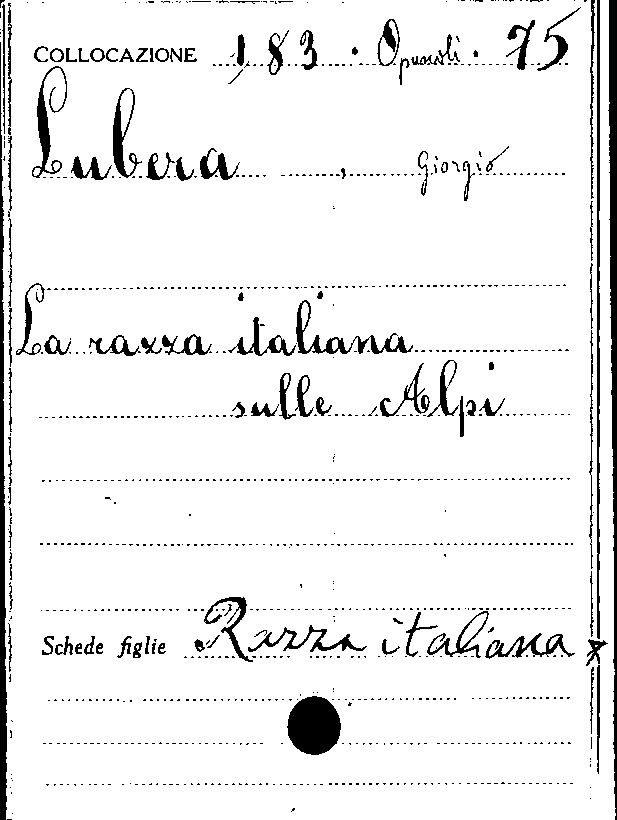 COLLOCAZIONE 183 · Opuscoli · 75
Lubera , Giorgio
La razza italiana
sulle Alpi
Schede figlie Razza italiana x